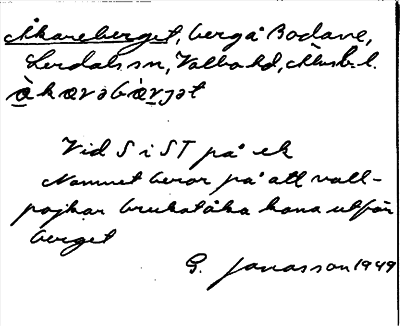 Åkareberget, berg å Bodane,
Lerdals sn, Valbo hd, Älvsb. l.
Vid S i ST på ek
Namnet beror på att vall-
pojkar brukat åka kana utför
berget
G. Jonasson 1949